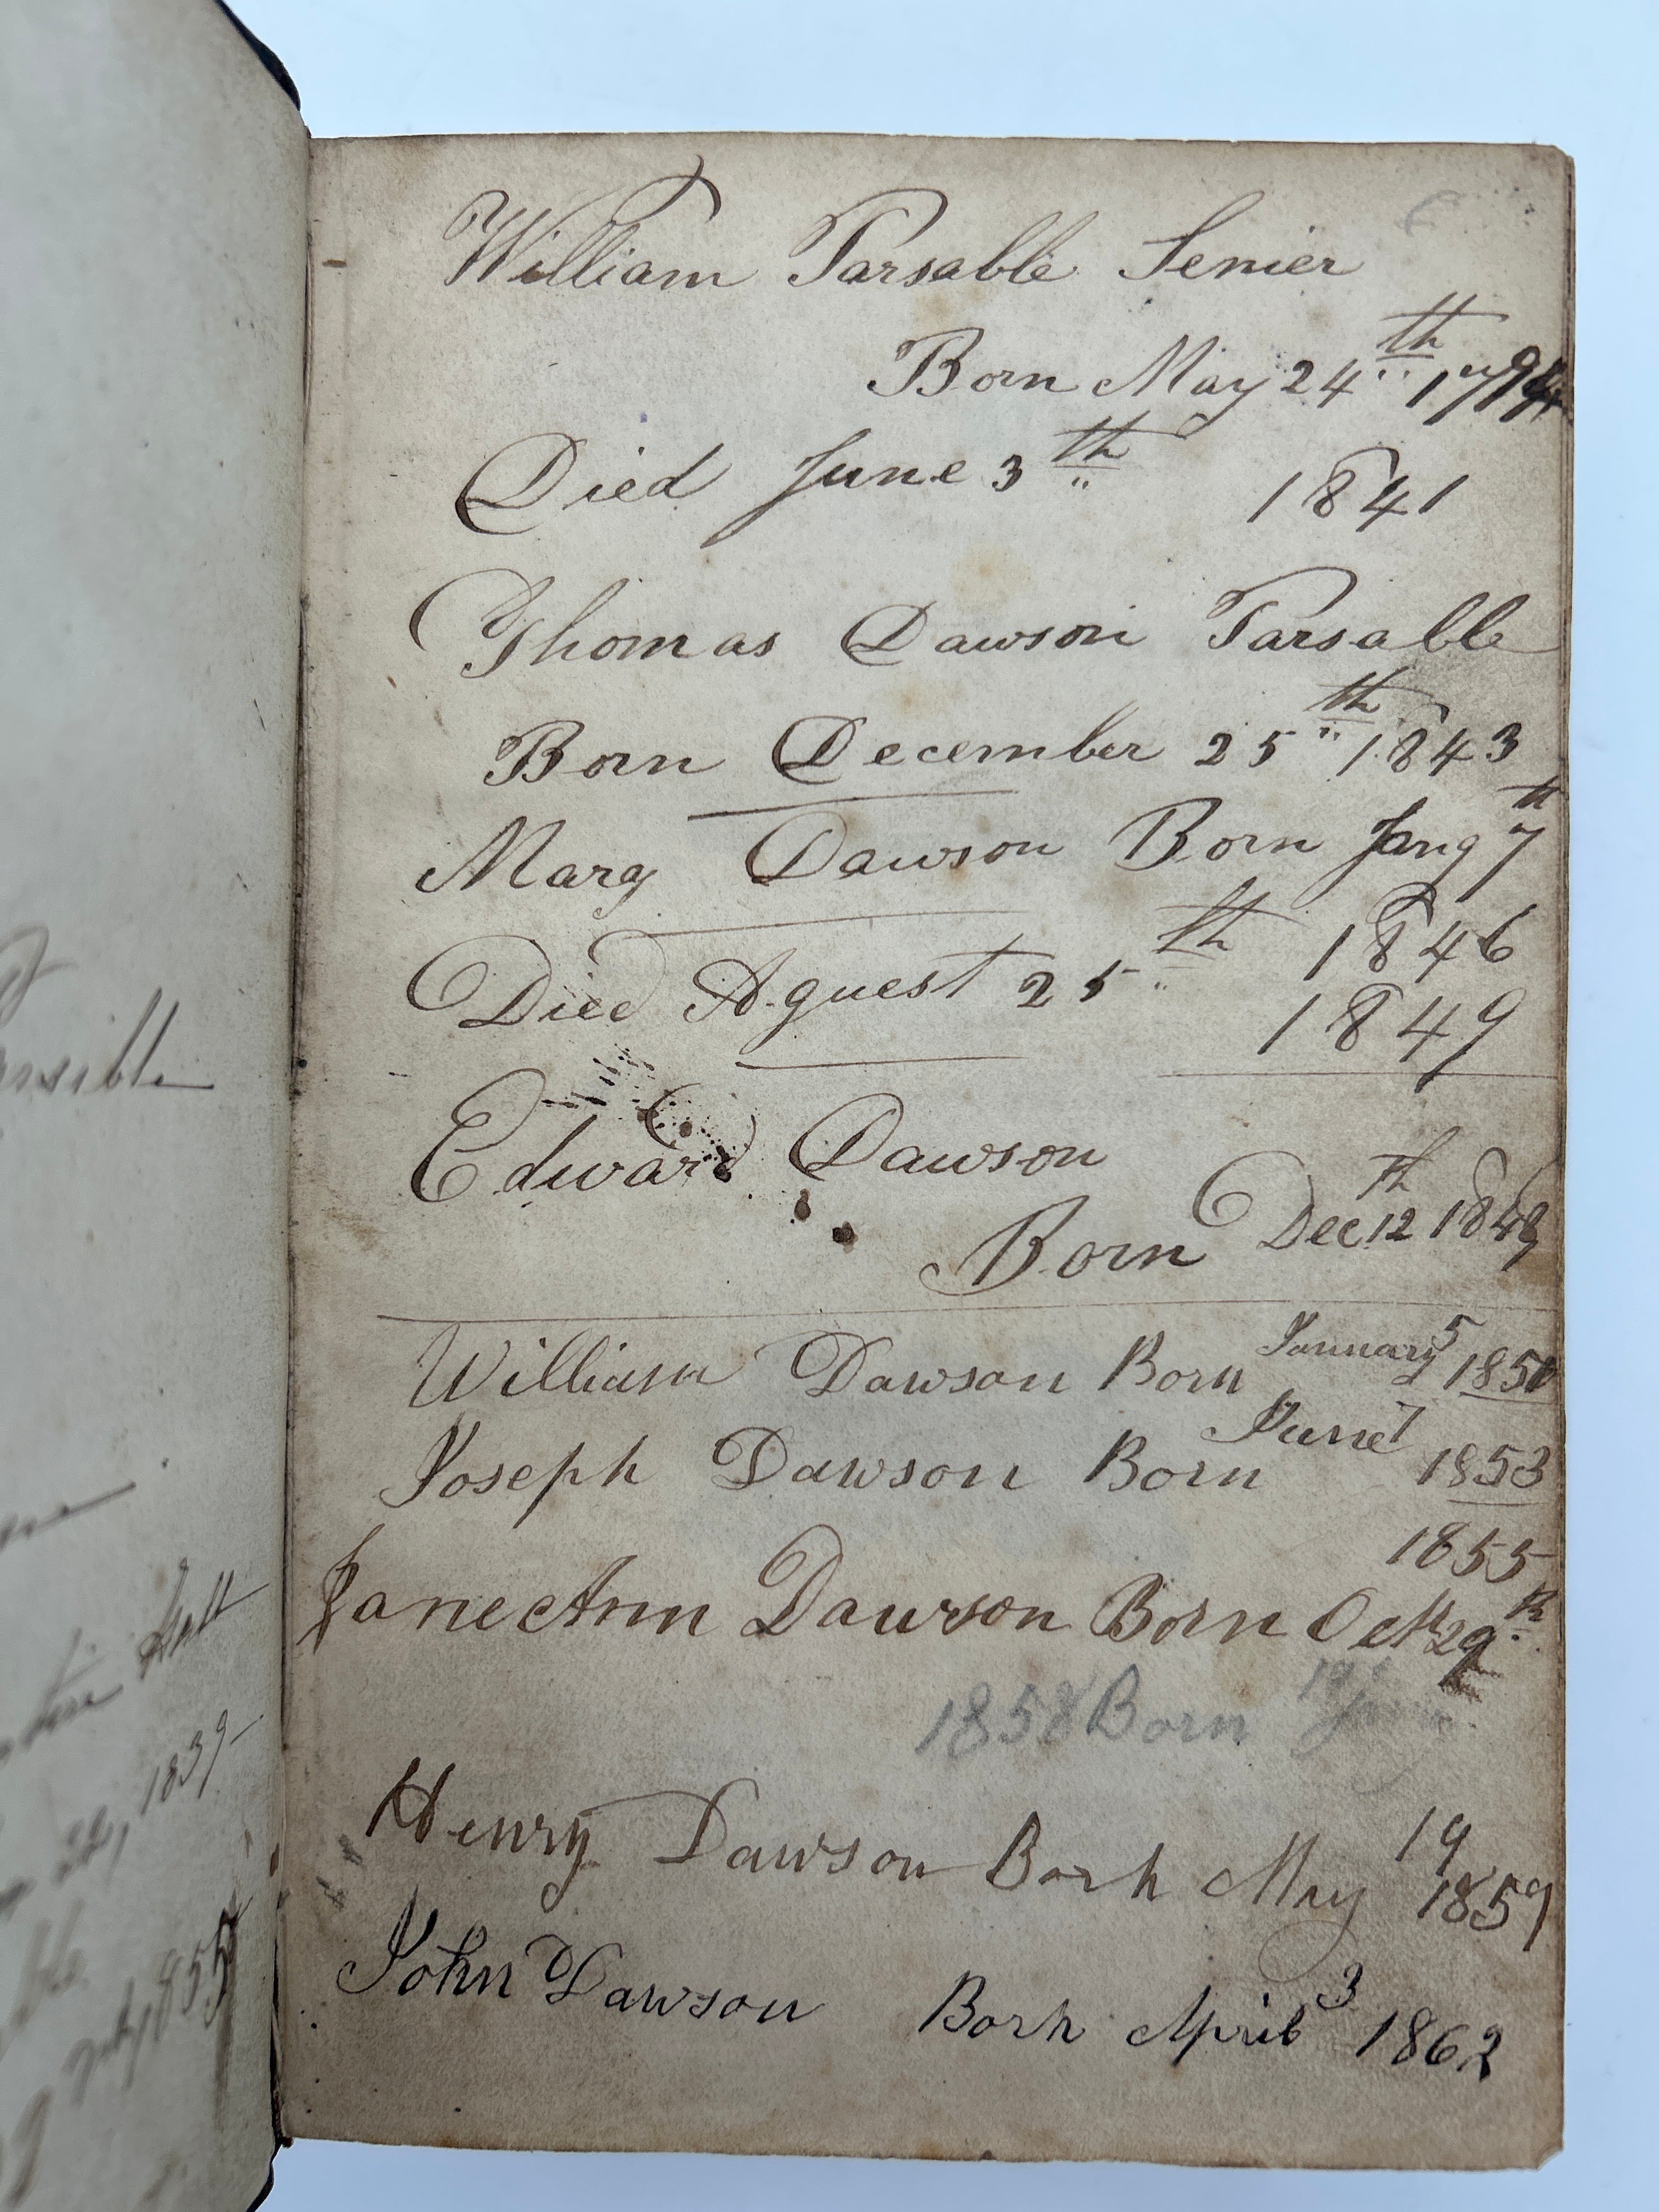 William Parsable Senier
Born May 24th 1794
Died June 3th 1841
Thomas Dawson Parsable
Born December 25th 1843
Mary Dawson Born Jany 7th
1846
Died Aguest 25th
1849
Edward Dawson
Born Dec 12th 1848
William Dawson Born January 5 1850
Joseph Dawson Born June 7 1853
1855
Jane Ann Dawson Born Oct 29th
1858 Born
Henry Dawson Born May 19
1859
John Dawson Born April 3 1862
1839
1855